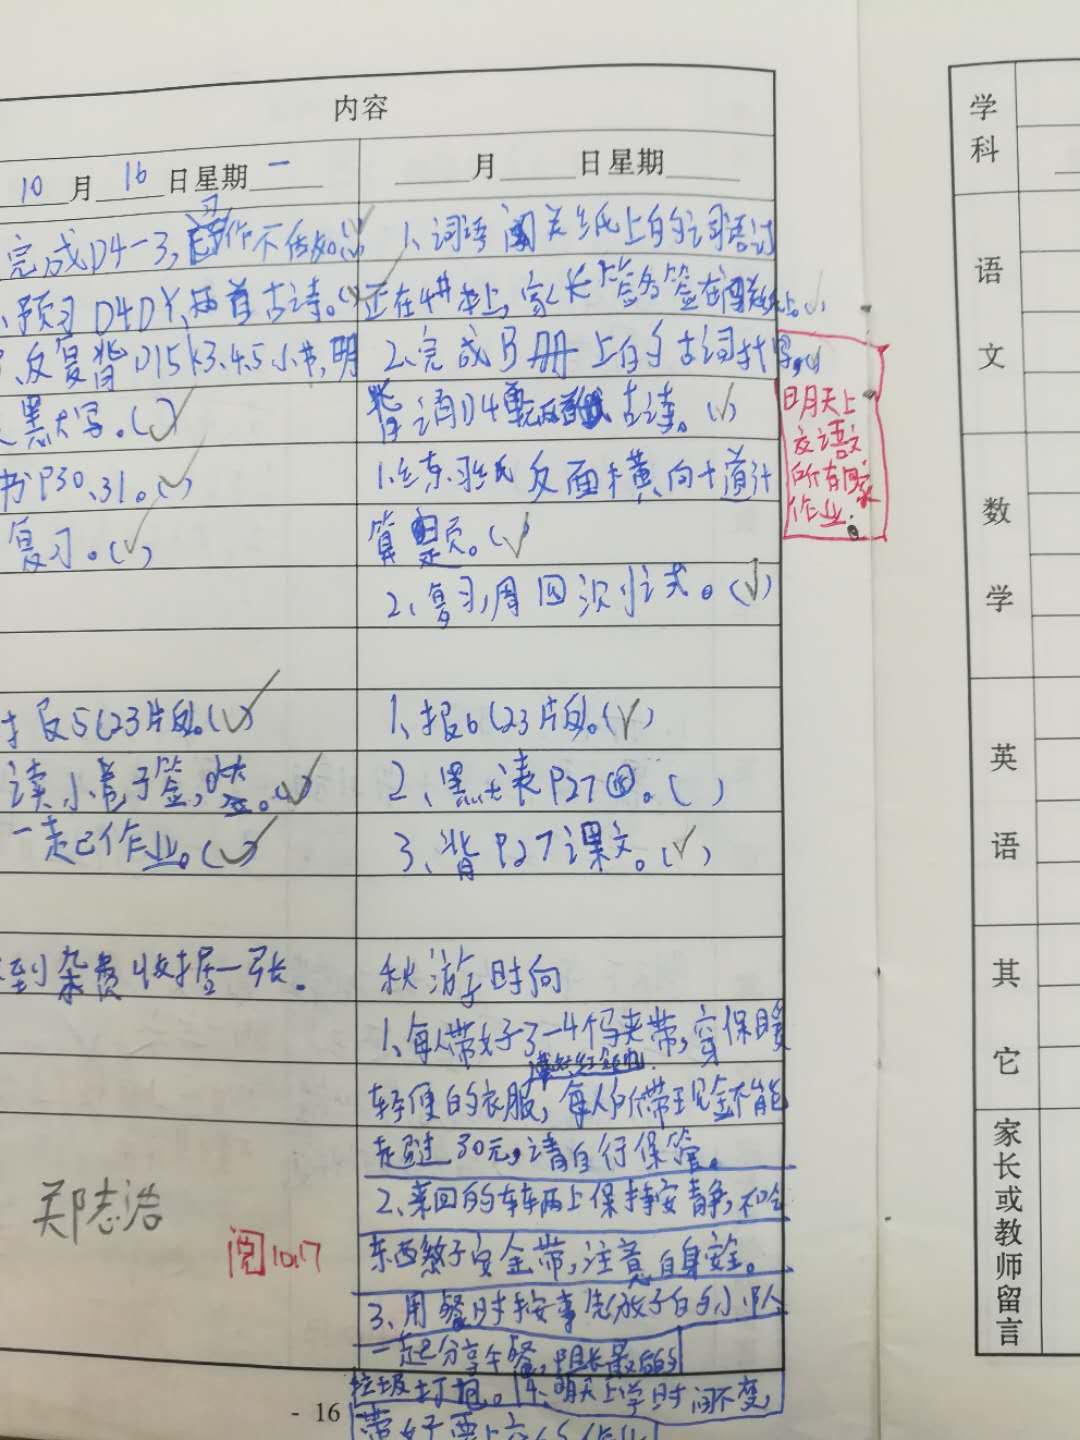 内容
10月16日星期一
完成P4-3,
、预习P4DY,两首古诗。(✓)
反复背P15k3.4.5小节,明
黑大写。(✓)
书P30、31。(✓)
复习。(✓)
报5(23片段。(✓)
读小巷子签,
一起作业。(✓)
到杂费收据一张。
郑志浩
阅10.17
月 日星期
1、词语闯关纸上的词语过
正在4#本上,家长签名签在
2、完成B册上的
背诵P4 古诗。(✓)
1.练习纸反面横向十道计
算题。(✓)
2、复习,周四测公式。(✓)
1、报6(23片段。(✓)
2、黑大表P27④。( )
3、背P27课文。(✓)
秋游时间
1、每人带好3-4个马夹带,穿保暖
戴好红领巾
轻便的衣服,每人所带现金不能
超过30元,请自行保管。
2、来回的车辆上保持安静,不吃
东西系好安全带,注意自身安全。
3、用餐时按事先放好的小队
一起分享午餐,
垃圾打包。4、明天上学时间不变,
带好要上交的作业
明天上
交语文
所有回家
作业.
- 16
学科
语文
数学
英语
其它
家长或教师留言